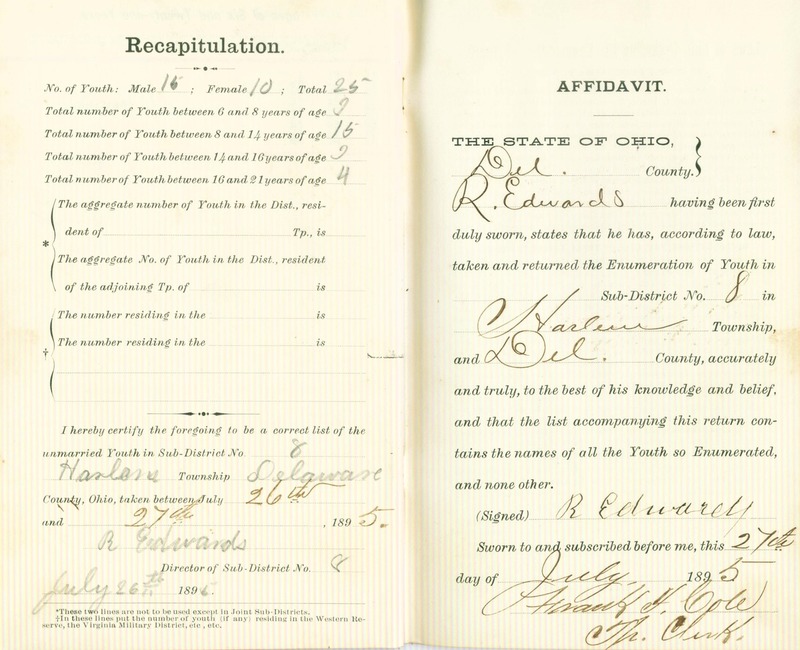 Recapitulation.
No. of Youth: Male 15 ; Female 10 ; Total 25
Total number of Youth between 6 and 8 years of age 3
Total number of Youth between 8 and 14 years of age 15
Total number of Youth between 14 and 16 years of age 3
Total number of Youth between 16 and 21 years of age 4
The aggregate number of Youth in the Dist., resi-
* dent of Tp., is
The aggregate No. of Youth in the Dist., resident
of the adjoining Tp. of is
The number residing in the is
† The number residing in the is
I hereby certify the foregoing to be a correct list of the
unmarried Youth in Sub-District No 8
Harlem Township Delaware
County, Ohio, taken between July 26th
and 27th , 1895.
R Edwards
Director of Sub-District No. 8
July 26th 1895.
*These two lines are not to be used except in Joint Sub-Districts.
†In these lines put the number of youth (if any) residing in the Western Re-
serve, the Virginia Military District, etc , etc.
AFFIDAVIT.
THE STATE OF OHIO,
Del. County.
R. Edwards having been first
duly sworn, states that he has, according to law,
taken and returned the Enumeration of Youth in
Sub-District No. 8 in
Harlem Township,
and Del. County, accurately
and truly, to the best of his knowledge and belief,
and that the list accompanying this return con-
tains the names of all the Youth so Enumerated,
and none other.
(Signed) R Edwards
Sworn to and subscribed before me, this 27th
day of July, 1895
Frank H. Cole
Tp. Clerk.